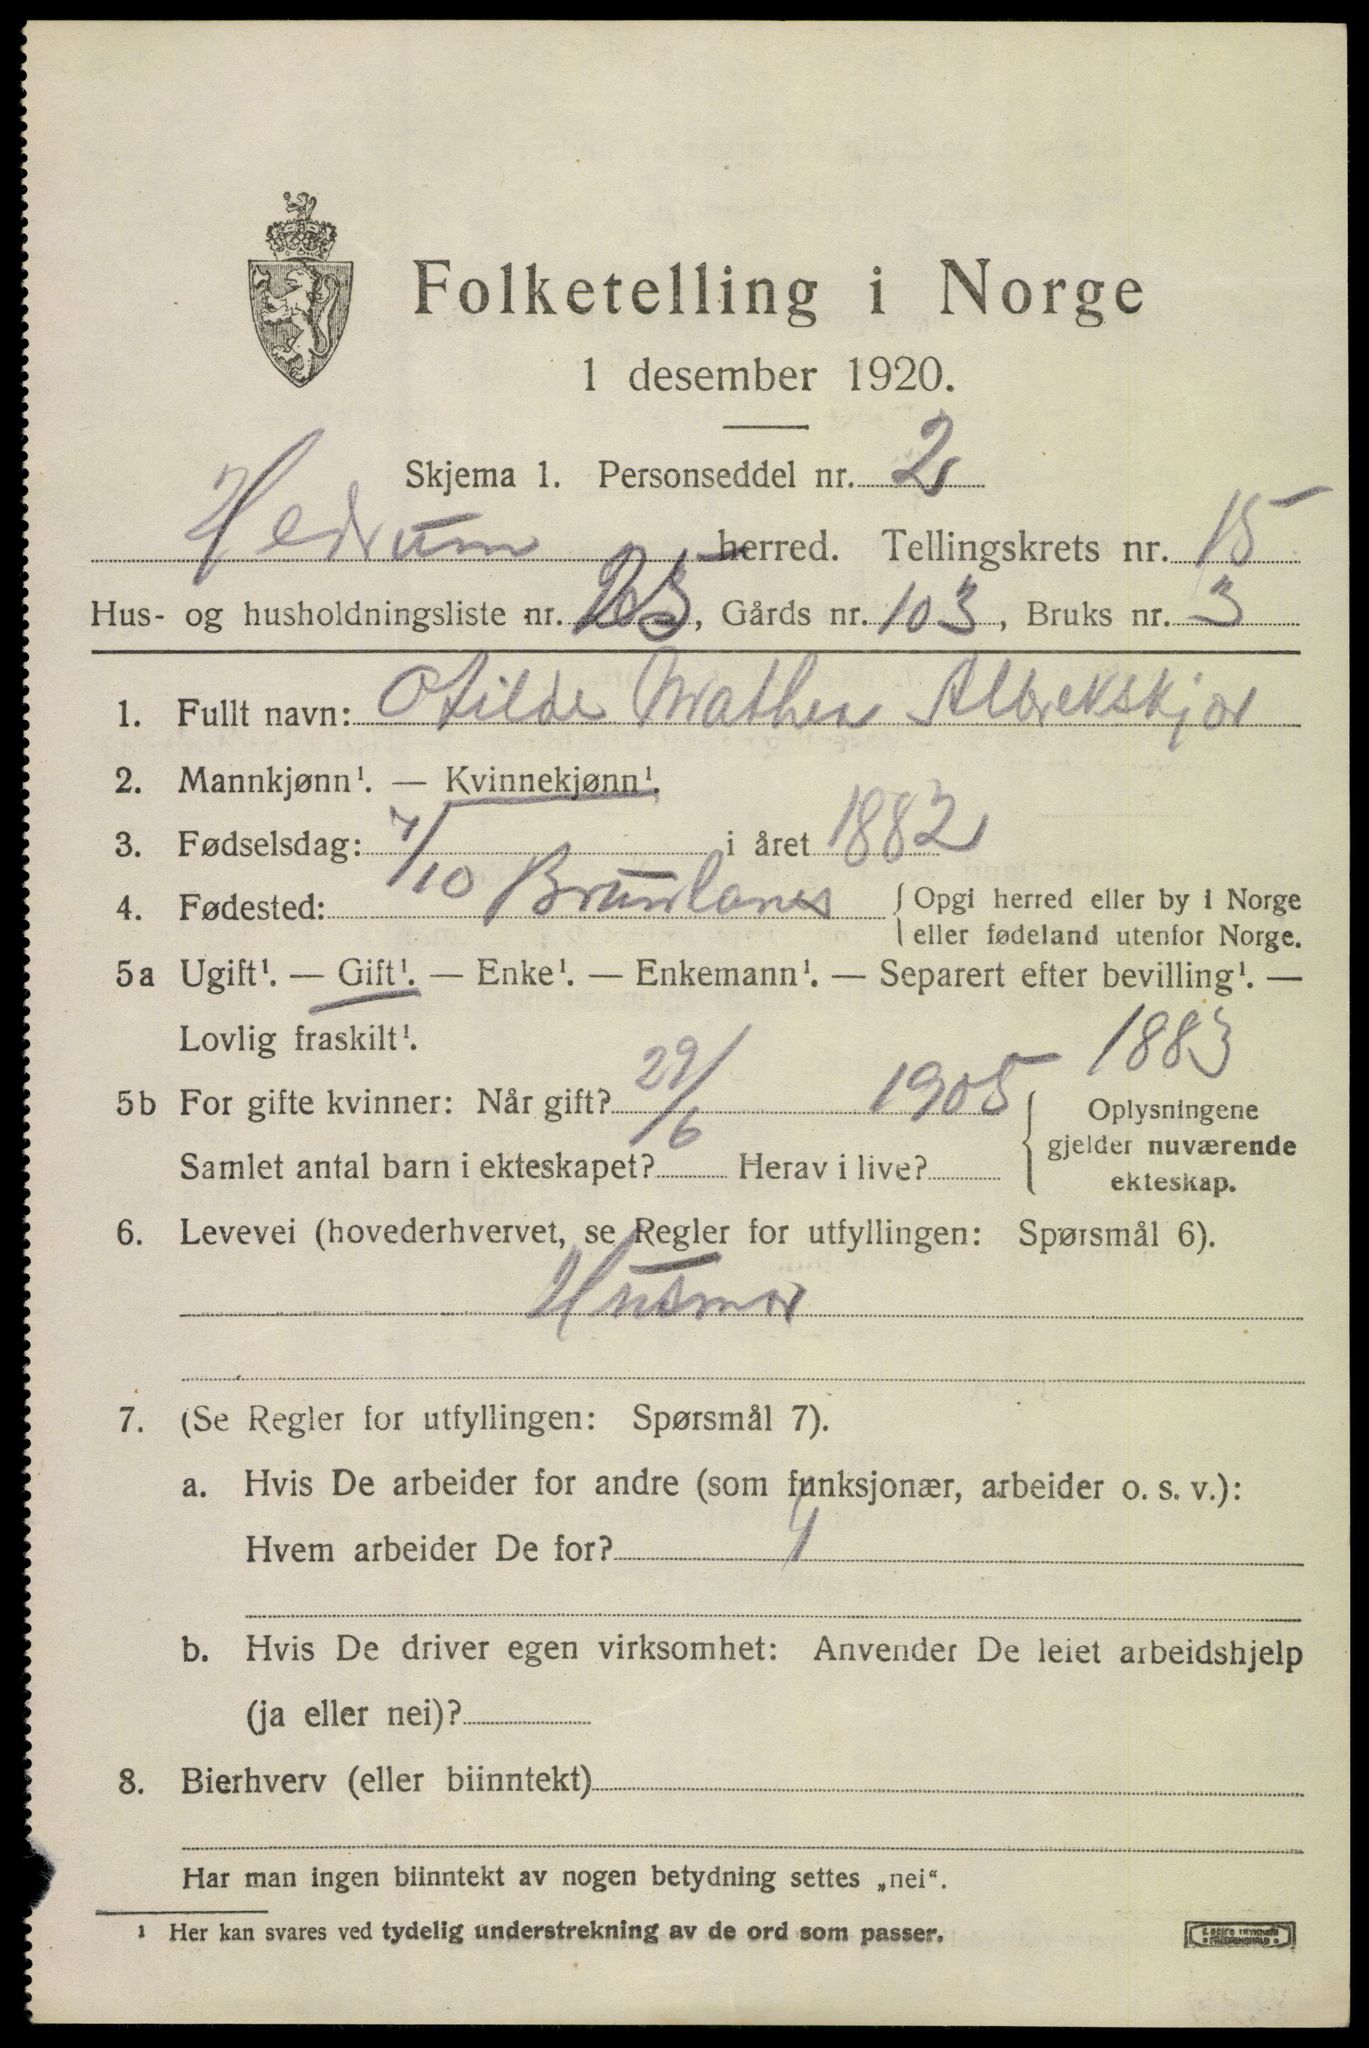 Folketelling i Norge
1 desember 1920.
Skjema 1. Personseddel nr. 2
Hedrum herred. Tellingskrets nr. 15
Hus- og husholdningsliste nr. 25, Gårds nr. 103, Bruks nr. 3
1. Fullt navn: Otilde Mathea Albrekskjør
2. Mannkjønn¹. — Kvinnekjønn¹.
3. Fødselsdag: 7/10 i året 1882
4. Fødested: Brunlanes { Opgi herred eller by i Norge
eller fødeland utenfor Norge.
5a Ugift¹. — Gift¹. — Enke¹. — Enkemann¹. — Separert efter bevilling¹. —
Lovlig fraskilt¹.
1883
5b For gifte kvinner: Når gift? 29/6 1905 { Oplysningene
gjelder nuværende
Samlet antal barn i ekteskapet? Herav i live?
ekteskap.
6. Levevei (hovederhvervet, se Regler for utfyllingen: Spørsmål 6).
Husmor
7. (Se Regler for utfyllingen: Spørsmål 7).
a. Hvis De arbeider for andre (som funksjonær, arbeider o. s. v.):
Hvem arbeider De for? 4
b. Hvis De driver egen virksomhet: Anvender De leiet arbeidshjelp
(ja eller nei)?
8. Bierhverv (eller biinntekt)
Har man ingen biinntekt av nogen betydning settes „nei“.
¹ Her kan svares ved tydelig understrekning av de ord som passer.